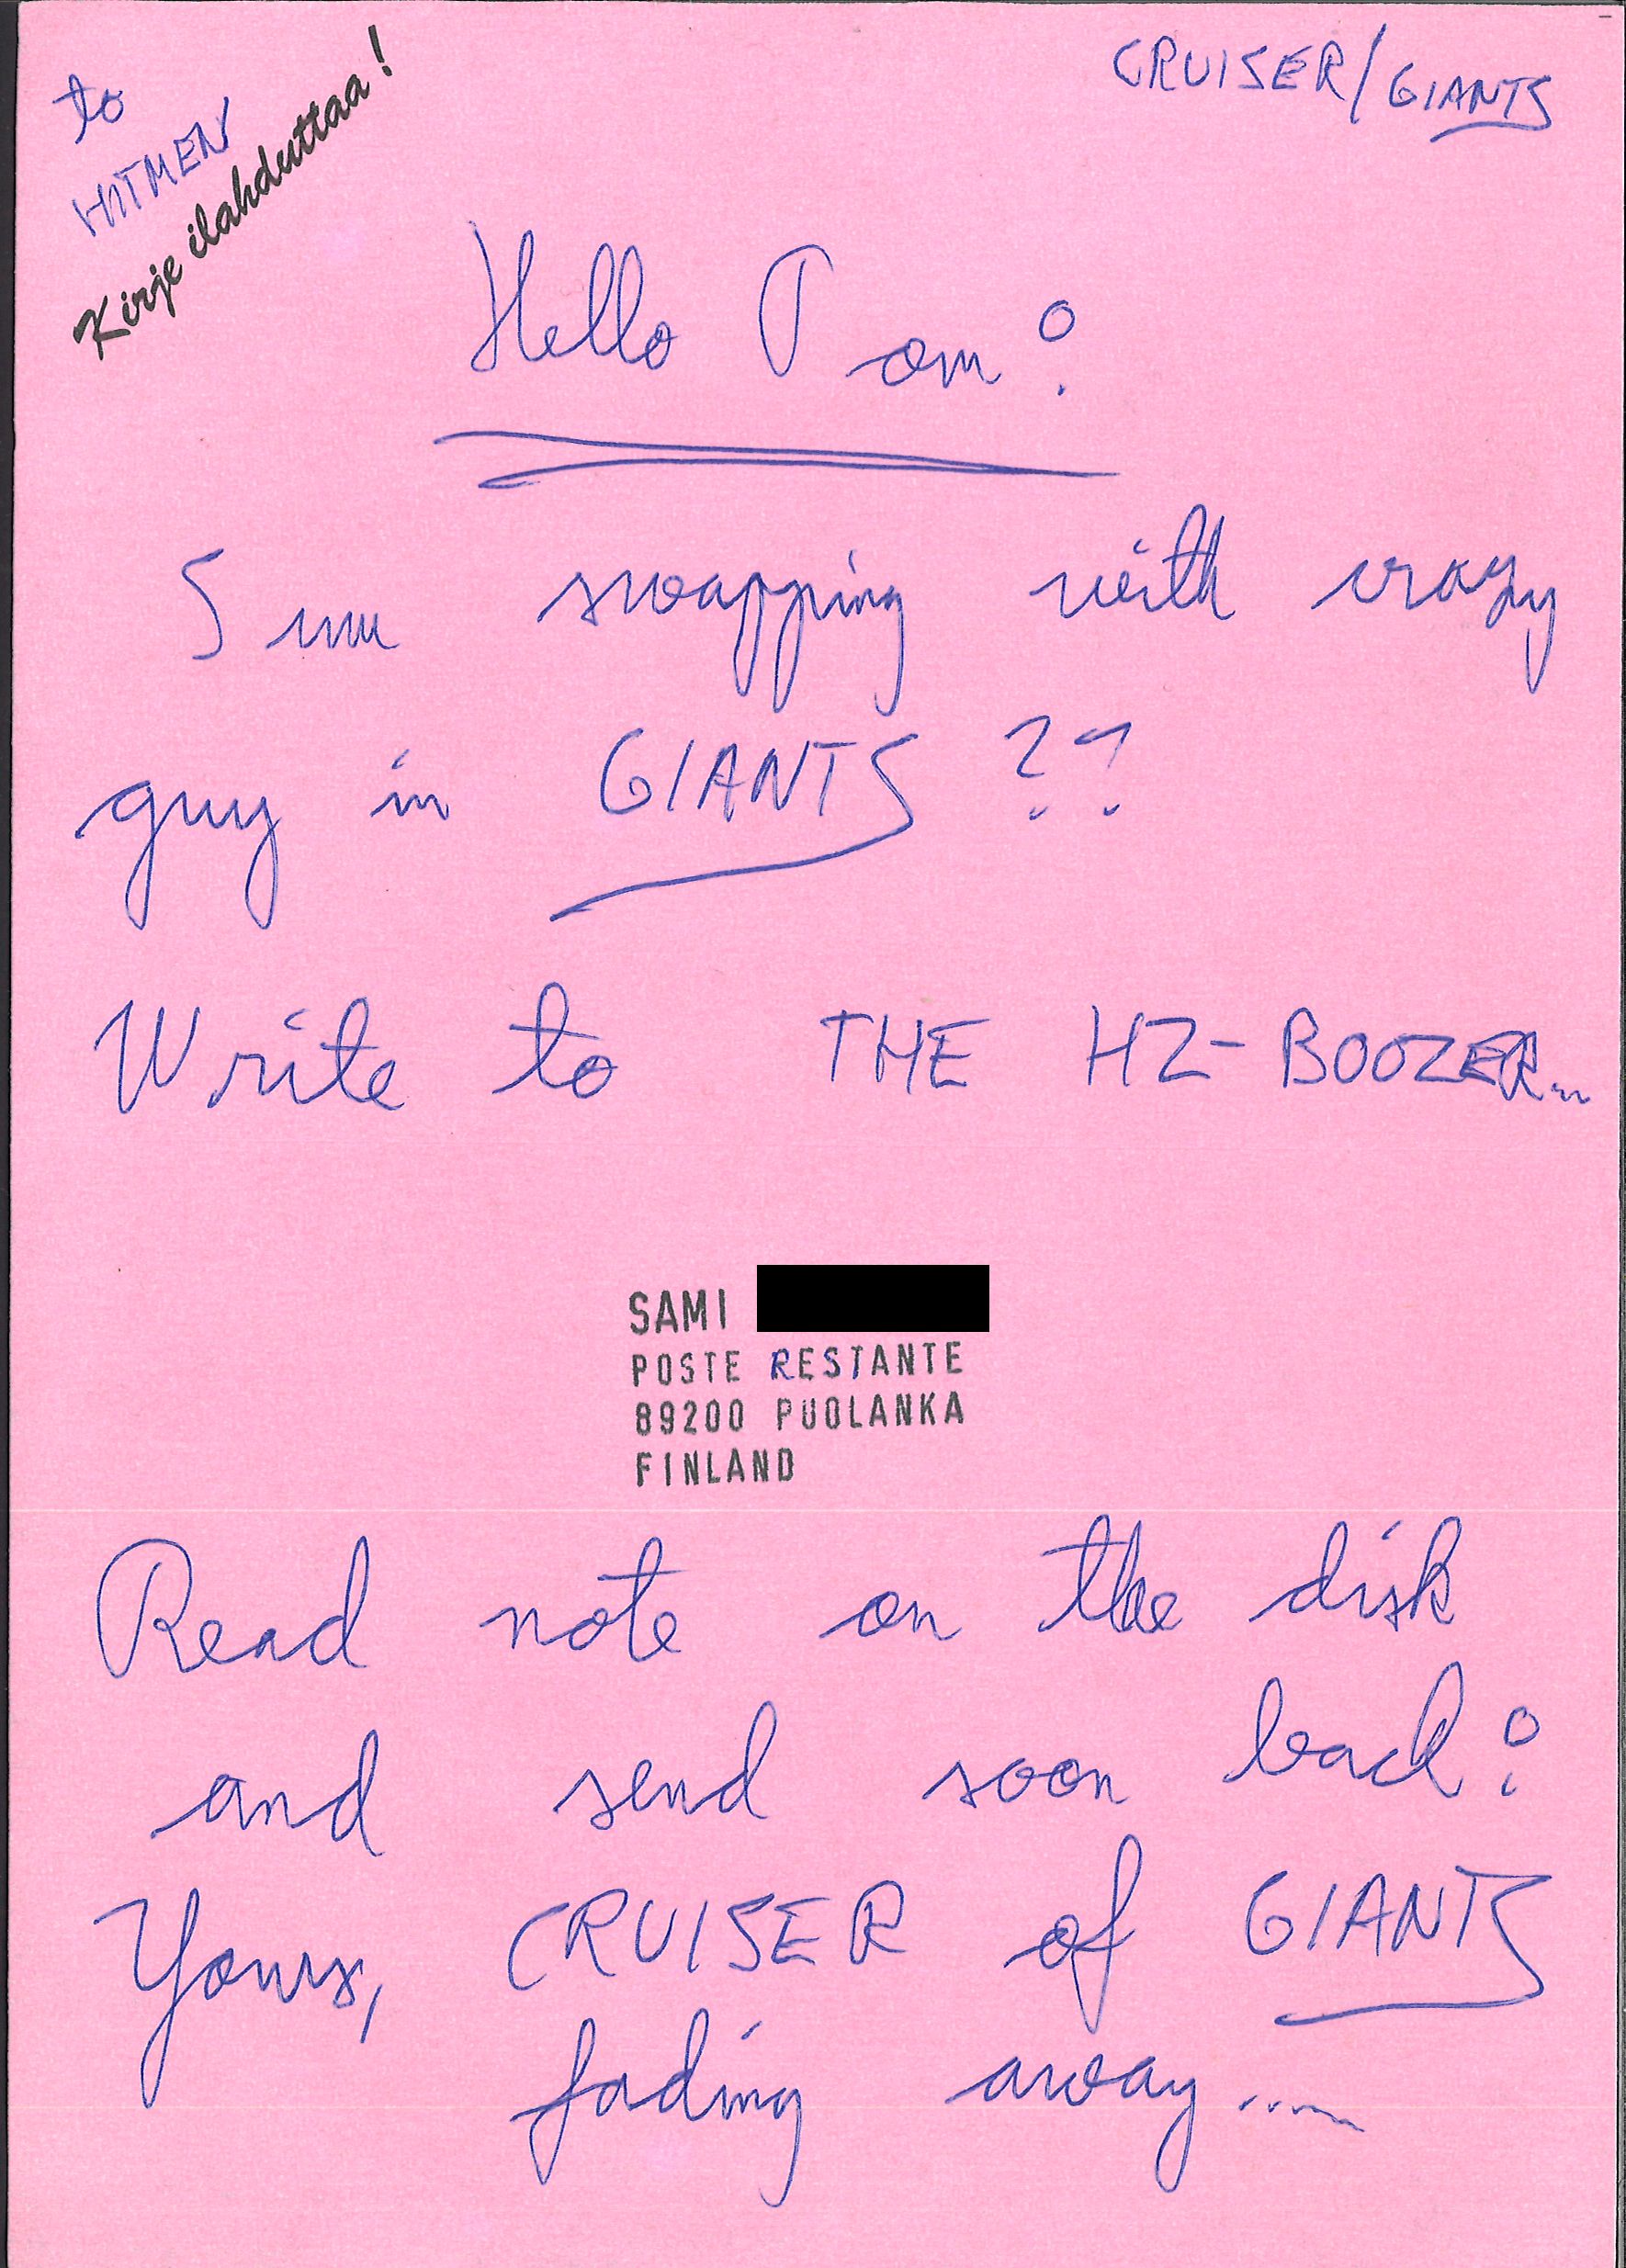 to
HITMEN
Kirje ilahduttaa!
CRUISER/GIANTS
Hello Tom!
swapping with crazy
guy in GIANTS ??
Write to THE HZ-BOOZER...
SAMI
POSTE RESTANTE
89200 PUOLANKA
FINLAND
Read note on the disk
and send soon back!
Yours, CRUISER of GIANTS
fading away.....